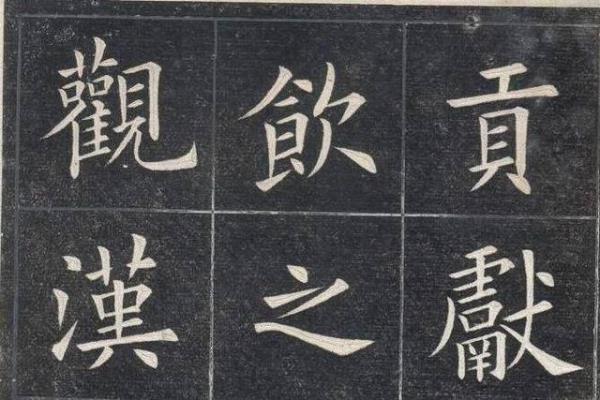 貢獻
飲之
觀漢